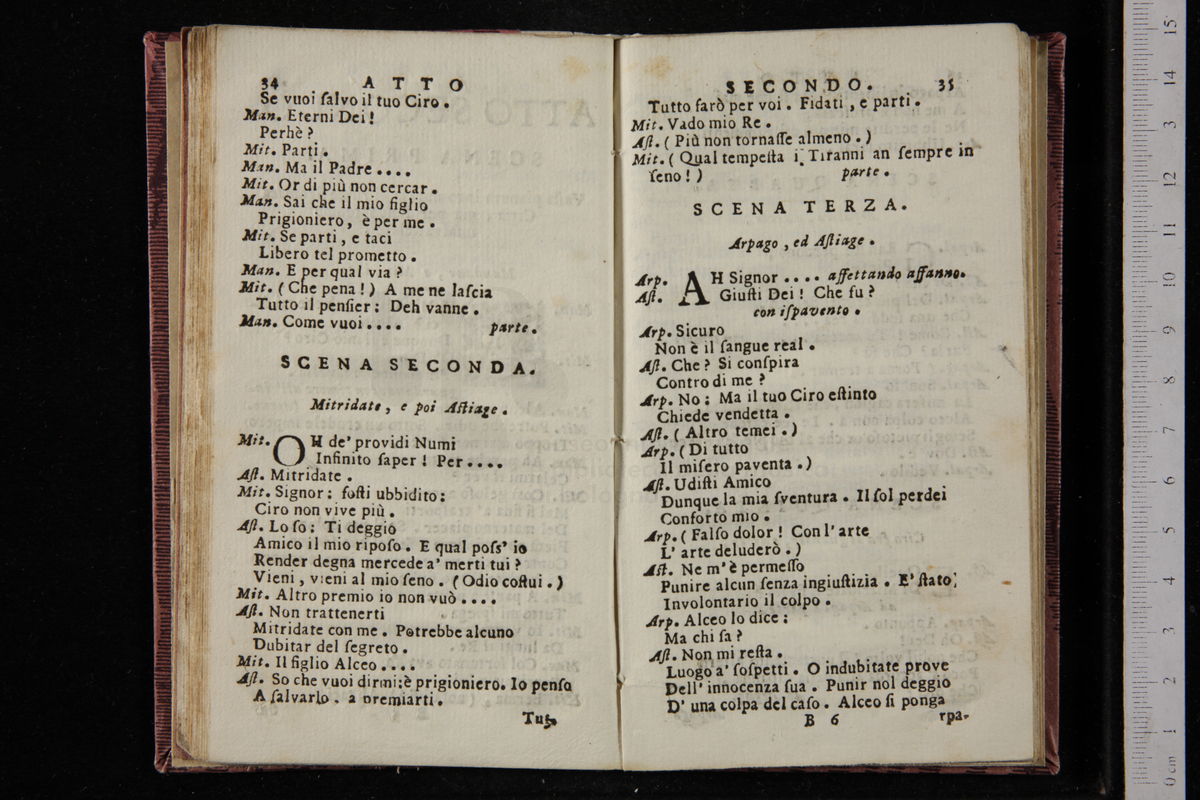 34 ATTO
Se vuoi ſalvo il tuo Ciro.
Man. Eterni Dei!
Perhè?
Mit. Parti.
Man. Ma il Padre....
Mit. Or di più non cercar.
Man. Sai che il mio figlio
Prigioniero, è per me.
Mit. Se parti, e taci
Libero tel prometto.
Man. E per qual via?
Mit. (Che pena!) A me ne laſcia
Tutto il penſier: Deh vanne.
Man. Come vuoi.... parte.
SCENA SECONDA.
Mitridate, e poi Aſtiage.
Mit. OH de' providi Numi
Infinito ſaper! Per....
Aſt. Mitridate.
Mit. Signor: foſti ubbidito:
Ciro non vive più.
Aſt. Lo ſo: Ti deggio
Amico il mio ripoſo. E qual poſs' io
Render degna mercede a' merti tui?
Vieni, vieni al mio ſeno. (Odio coſtui.)
Mit. Altro premio io non vuò....
Aſt. Non trattenerti
Mitridate con me. Potrebbe alcuno
Dubitar del ſegreto.
Mit. Il figlio Alceo....
Aſt. So che vuoi dirmi: è prigioniero. Io penſo
A ſalvarlo, a premiarti.
Tut-
SECONDO. 35
Tutto farò per voi. Fidati, e parti.
Mit. Vado mio Re.
Aſt. (Più non tornaſſe almeno.)
Mit. (Qual tempeſta i Tiranni an ſempre in
ſeno!) parte.
SCENA TERZA.
Arpago, ed Aſtiage.
Arp. AH Signor.... affettando affanno.
Aſt. Giuſti Dei! Che fu?
con iſpavento.
Arp. Sicuro
Non è il ſangue real.
Aſt. Che? Si conſpira
Contro di me?
Arp. No: Ma il tuo Ciro eſtinto
Chiede vendetta.
Aſt. (Altro temei.)
Arp. (Di tutto
Il miſero paventa.)
Aſt. Udiſti Amico
Dunque la mia ſventura. Il ſol perdei
Conforto mio.
Arp. (Falſo dolor! Con l' arte
L' arte deluderò.)
Aſt. Ne m' è permeſſo
Punire alcun ſenza ingiuſtizia. E' ſtato
Involontario il colpo.
Arp. Alceo lo dice:
Ma chi ſa?
Aſt. Non mi reſta.
Luogo a' ſoſpetti. O indubitate prove
Dell' innocenza ſua. Punir nol deggio
D' una colpa del caſo. Alceo ſi ponga
B 6 rpa-